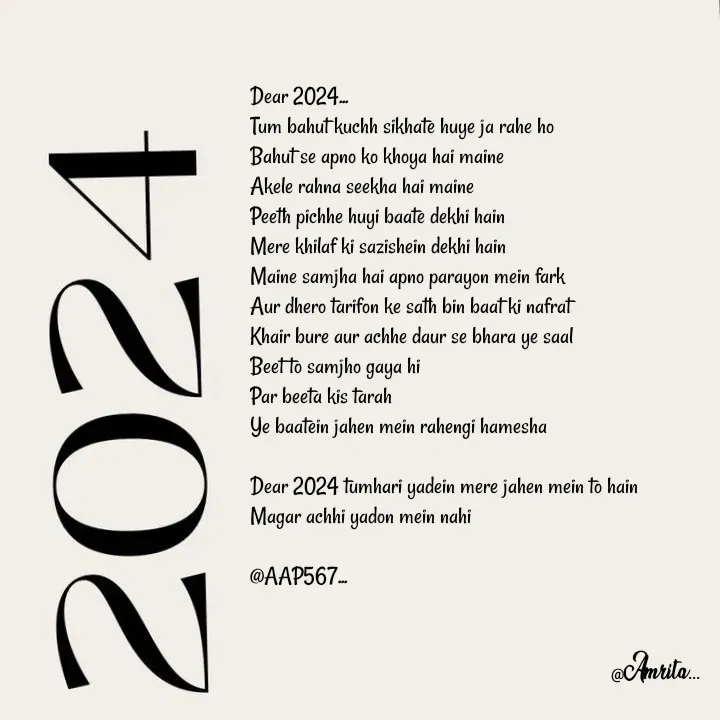 2024
Dear 2024...
Tum bahut kuchh sikhate huye ja rahe ho
Bahut se apno ko khoya hai maine
Akele rahna seekha hai maine
Peeth pichhe huyi baate dekhi hain
Mere khilaf ki sazishein dekhi hain
Maine samjha hai apno parayon mein fark
Aur dhero tarifon ke sath bin baat ki nafrat
Khair bure aur achhe daur se bhara ye saal
Beet to samjho gaya hi
Par beeta kis tarah
Ye baatein jahen mein rahengi hamesha
Dear 2024 tumhari yadein mere jahen mein to hain
Magar achhi yadon mein nahi
@AAP567...
@Amrita...